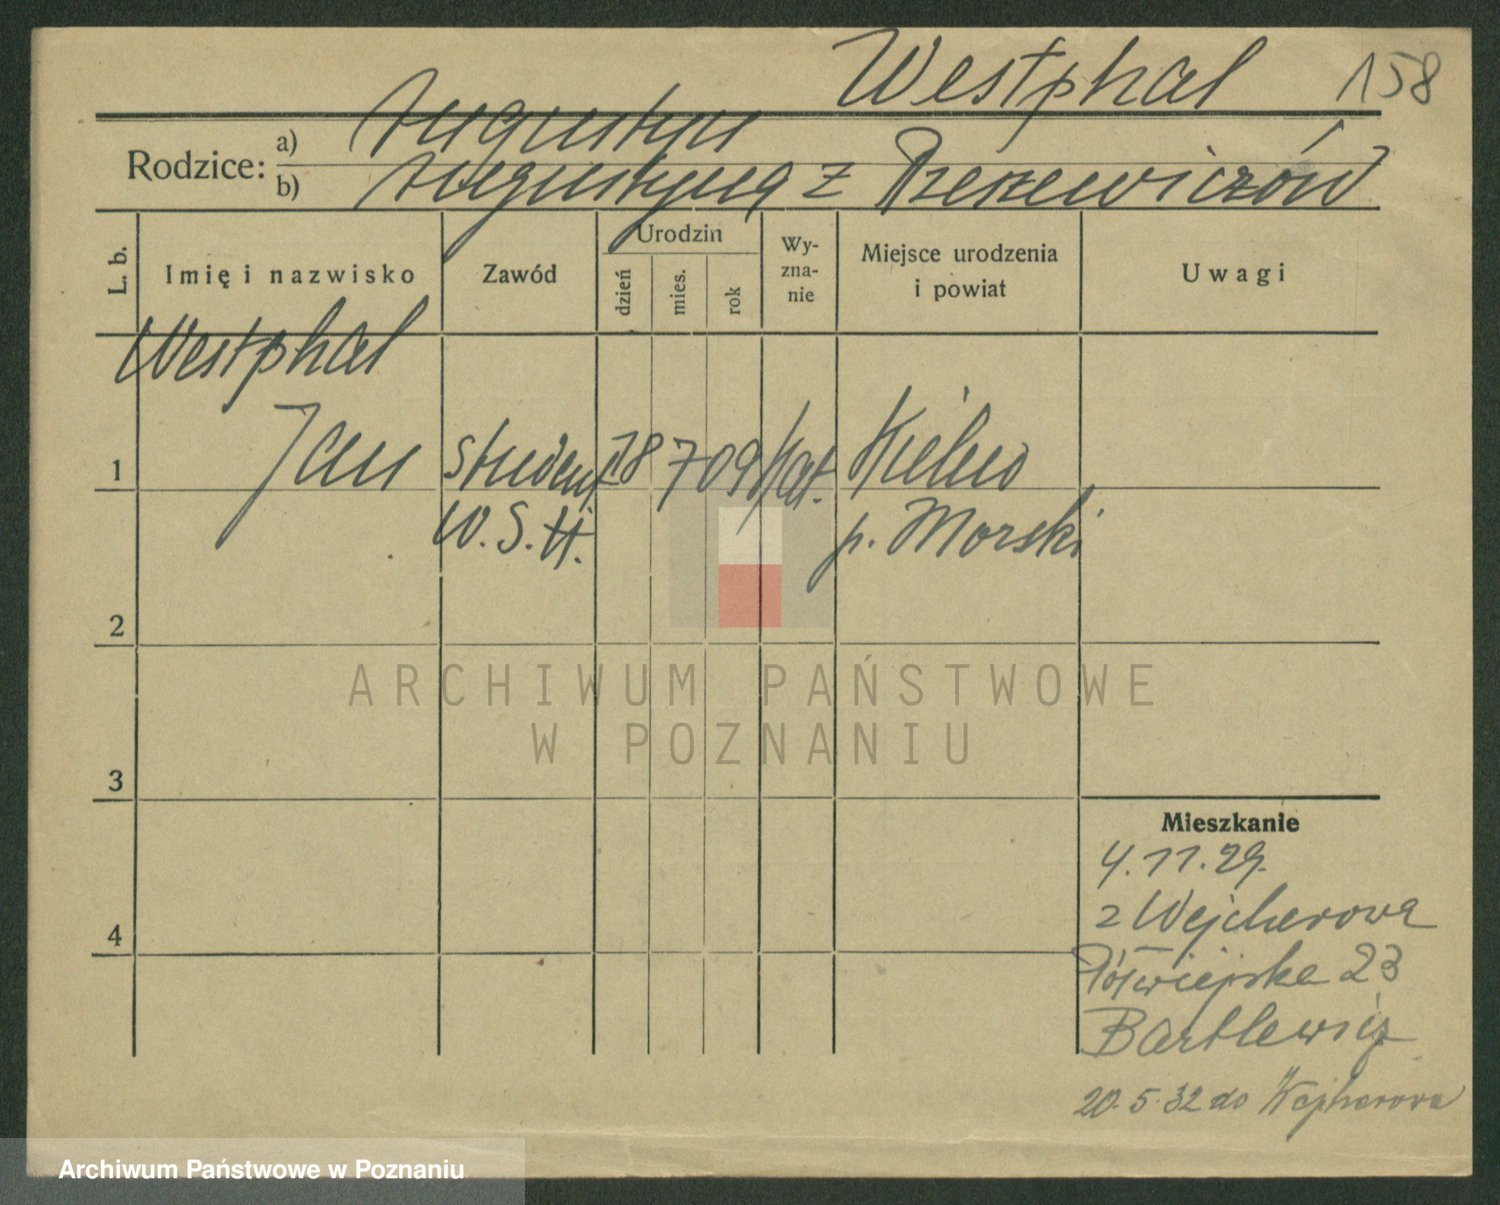 Westphal 158
Rodzice: a) Augustyn
b) Augustyna z
L. b. Imię i nazwisko Zawód Urodzin dzień mies. rok Wyznanie Miejsce urodzenia i powiat Uwagi
Westphal
1 Jan student 18 7 09 kat. Kielno
W.S.H. p. Morski
2
ARCHIWUM PAŃSTWOWE
W POZNANIU
3
Mieszkanie
4.11.29.
z Wejcherowa
4
Półwiejska 23
Bartlewicz
20.5.32 do Wejherowa
Archiwum Państwowe w Poznaniu